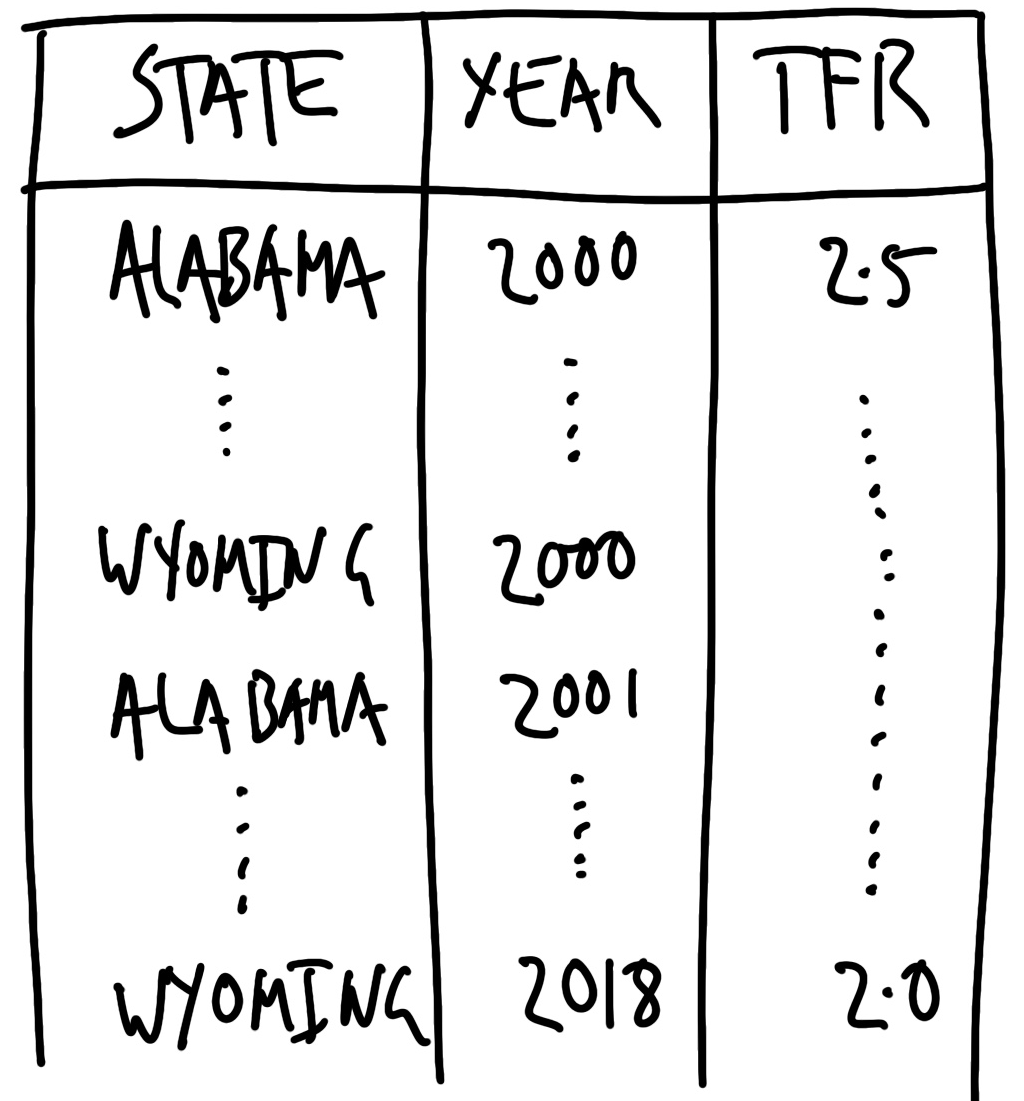 STATE YEAR TFR
ALABAMA 2000 2.5
WYOMING 2000
ALABAMA 2001
WYOMING 2018 2.0